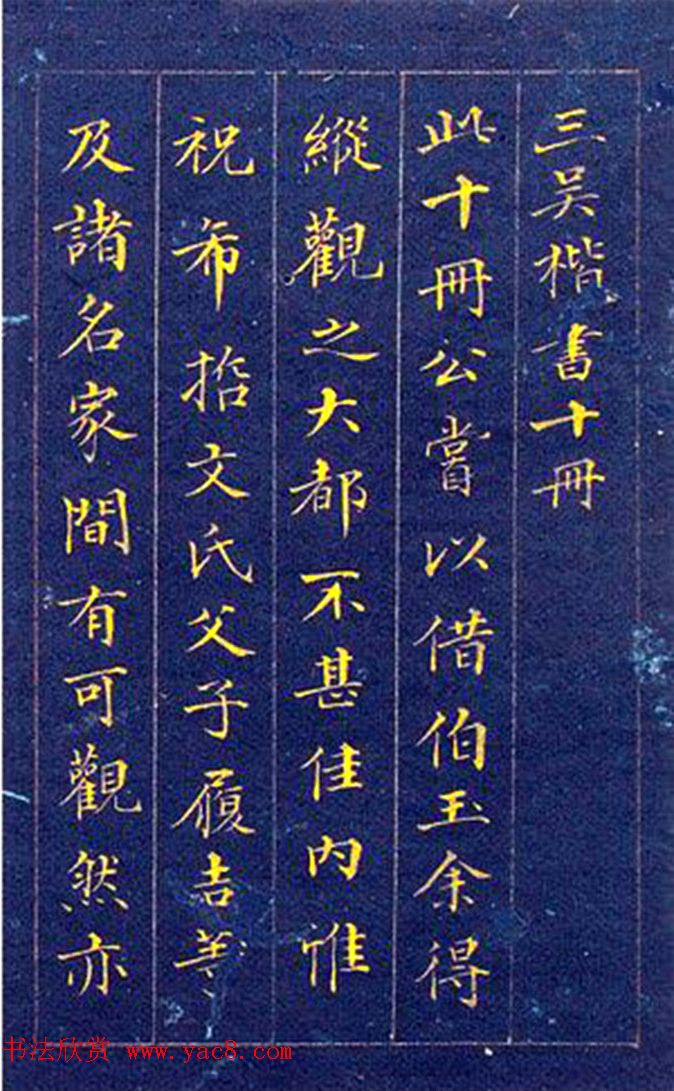 三吴楷書十冊
此十冊公嘗以借伯玉余得
縱觀之大都不甚佳内惟
祝希哲文氏父子履吉
及諸名家間有可觀然亦
书法欣赏 www.yac8.com